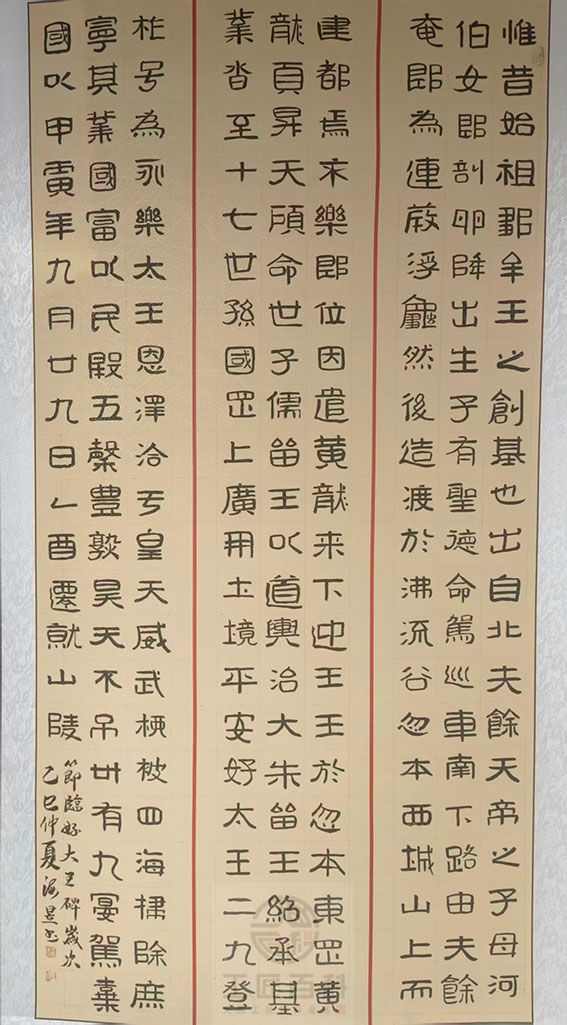 惟昔始祖鄒牟王之創基也出自北夫餘天帝之子母河
伯女郎剖卵降出生子有聖德命駕巡車南下路由夫餘
奄郎為連葭浮龜然後造渡於沸流谷忽本西城山上而
建都焉末樂即位因遣黃龍来下迎王王於忽本東罡黃
龍頁昇天顧命世子儒留王以道興治大朱留王紹承基
業沓至十七世孫國罡上廣開土境平安好太王二九登
祚号為永樂太王恩澤洽于皇天威武柳被四海掃除庶
寧其業國富以民殷五穀豊熟昊天不吊卅有九宴駕棄
國以甲寅年九月廿九日乙酉遷就山陵
節臨好大王碑歲次
乙巳仲夏海昱书